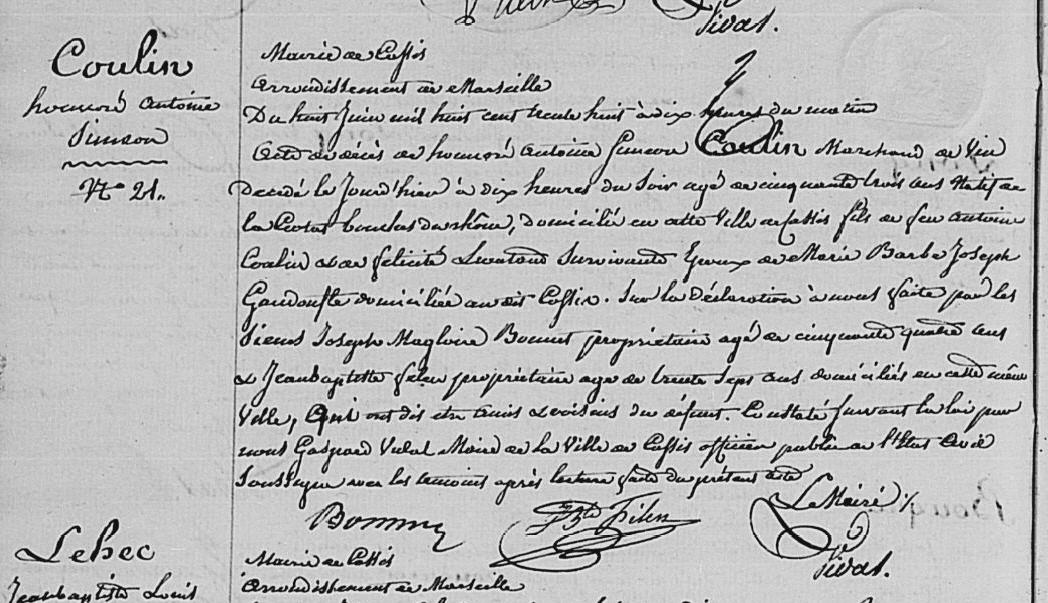 Vivas.
Coulin
honnoré Antoine
Simeon
N° 21.
Mairie de Cassis
Arrondissement de Marseille
Du huit Juin mil huit cent trente huit à dix heures du matin
Acte de décès de honnoré Antoine Simeon Coulin Marchand de Vin
Decedé le Jourd'hier à dix heures du Soir agé de cinquante trois ans Natif de
la Ciotat bouches du rhône, domicilié en cette Ville de Cassis fils de feu Antoine
Coulin & de felicité Survivante Epoux de Marie Barbe Joseph
domiciliée au dit Cassis. Sur la Déclaration à nous faite par les
Sieurs Joseph Magloire Bonnet propriétaire agé de cinquante quatre ans
& Jeanbaptiste propriétaire agé de trente Sept ans domiciliés en cette même
Ville, Qui ont dit etre amis & voisins du défunt. Constaté suivant la loi par
nous Gaspard Maire de la Ville de Cassis officier public de l'Etat Civil
Soussigné avec les temoins après lecture faite du présent acte
Le Maire
Vivas.
Lebec
Jeanbaptiste Louis
Mairie de Cassis
Arrondissement de Marseille